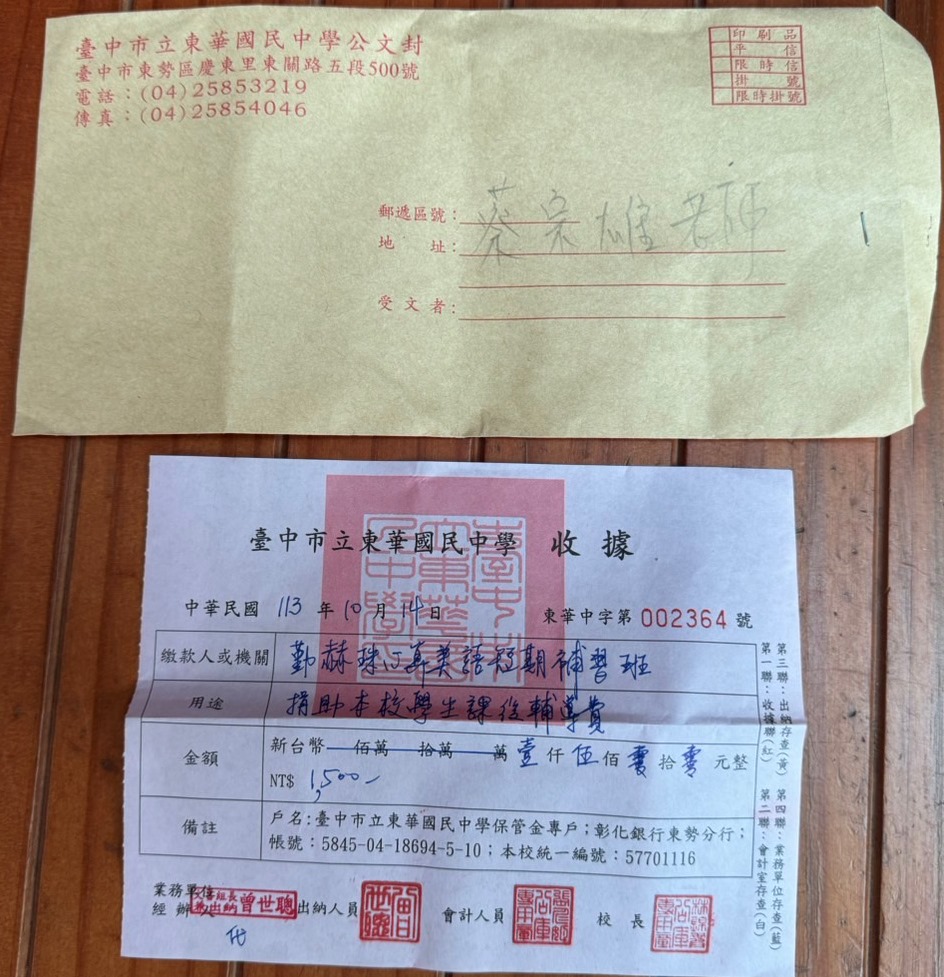 臺中市立東華國民中學公文封
臺中市東勢區慶東里東關路五段500號
電話：(04)25853219
傳真：(04)25854046
印刷品
平信
限時信
掛號
限時掛號
郵遞區號：
蔡宗雄老師
地址：
受文者：
臺中市立東華國民中學 收據
中華民國 113 年 10 月 14 日
東華中字第 002364 號
繳款人或機關 勤赫珠心算美語短期補習班
用途 捐助本校學生課後輔導費
金額 新台幣 佰萬 拾萬 萬 壹仟伍佰零拾零元整
NT$ 1,500-
備註 戶名：臺中市立東華國民中學保管金專戶；彰化銀行東勢分行；
帳號：5845-04-18694-5-10；本校統一編號：57701116
第一聯：收據聯(紅)
第二聯：會計室存查(白)
第三聯：出納存查(黃)
第四聯：業務單位存查(藍)
業務單位
經辦人
曾世聰
代
出納人員
會計人員
校長